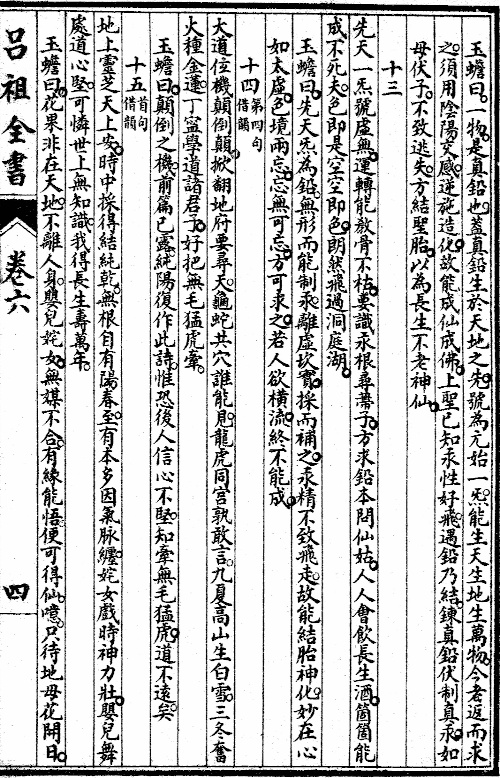 玉蟾曰一物是真鉛也蓋真鉛生於天地之先號為元始一炁能生天生地生萬物今老返而求
之須用陰陽交感逆施造化故能成仙成佛上聖已知汞性好飛遇鉛乃結鍊真鉛伏制真汞如
母伏子不致逃失方結聖胎以為長生不老神仙
十三
先天一炁號虛無運轉能教骨不枯要識汞根尋蒂子方求鉛本問仙姑人人會飲長生酒箇箇能
成不死夫色即是空空即色朗然飛過洞庭湖
玉蟾曰先天炁為鉛無形而能制汞離虛坎實採而補之汞精不致飛走故能結胎神化妙在心
如太虛色境兩忘忘無可忘方可求之若人欲橫流終不能成
十四第四句借韻
大道位機顛倒顛掀翻地府要尋天龜蛇共穴誰能見龍虎同宮孰敢言九夏高山生白雪三冬奮
火種金蓮丁寍學道諸君子好把無毛猛虎牽
玉蟾曰顛倒之機前篇已露純陽復作此詩惟恐後人信心不堅知牽無毛猛虎道不遠矣
十五首句借韻
地上靈芝天上安時中採得結純乾無根自有陽春至有本多因氣脉纏姹女戲時神力壯嬰兒舞
處道心堅可憐世上無知識我得長生壽萬年
玉蟾曰花果非在天地不離人身嬰兒姹女無媒不合有緣能悟便可得仙噫只待地母花開日
呂祖全書
卷六
四